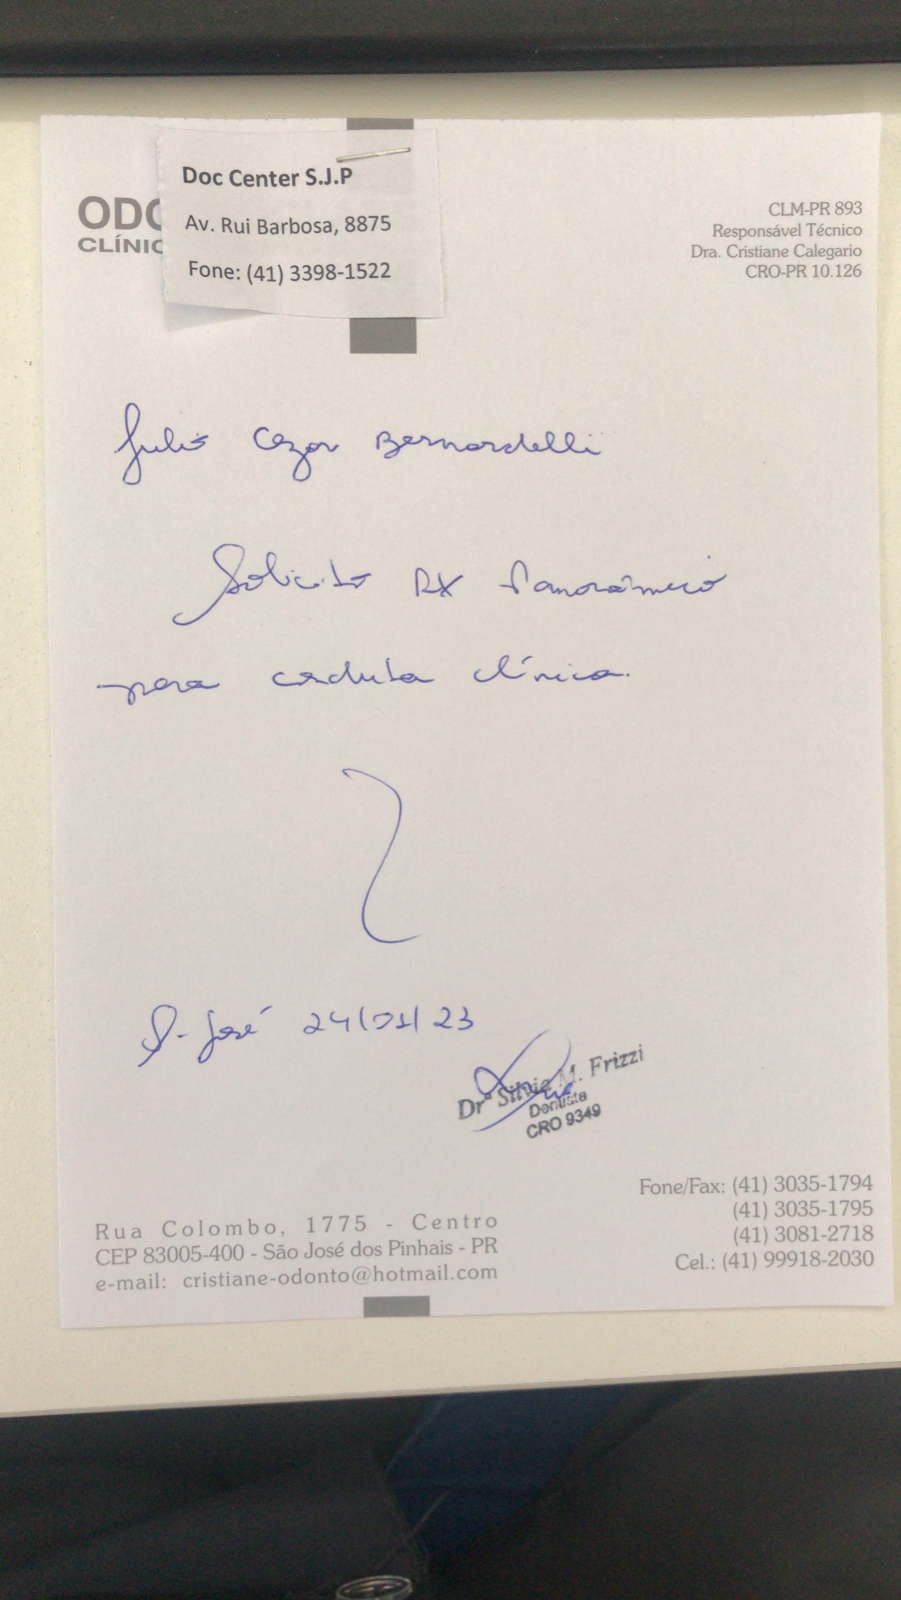 Doc Center S.J.P
Av. Rui Barbosa, 8875
Fone: (41) 3398-1522
ODO
CLÍNIC
CLM-PR 893
Responsável Técnico
Dra. Cristiane Calegario
CRO-PR 10.126
Julio Cezar Bernardelli
Solicito RX Panorâmico
para conduta clínica.
S. José 24/01/23
Drª Silvia M. Frizzi
Dentista
CRO 9349
Rua Colombo, 1775 - Centro
CEP 83005-400 - São José dos Pinhais - PR
e-mail: cristiane-odonto@hotmail.com
Fone/Fax: (41) 3035-1794
(41) 3035-1795
(41) 3081-2718
Cel.: (41) 99918-2030